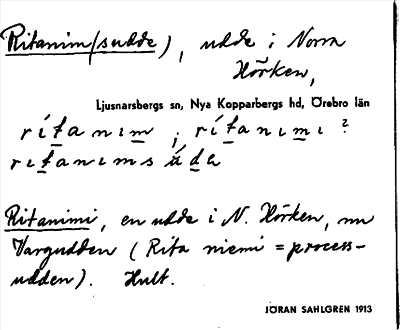 Ritanim(sudde), udde i Norra
Hörken,
Ljusnarsbergs sn, Nya Kopparbergs hd, Örebro län
rítanım ; rítanımı ?
rıtanımsúdɘ
Ritanimi, en udde i N. Hörken, nu
Vargudden (Rita niemi = process-
udden). Hult.
JÖRAN SAHLGREN 1913